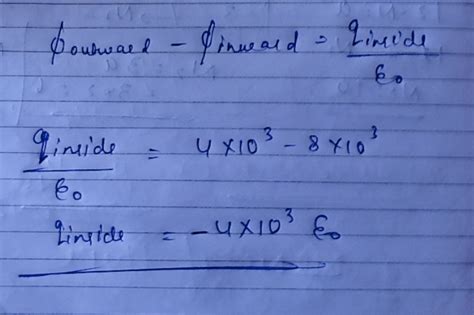 ϕoutward - ϕinward = qinside/ε₀
qinside/ε₀ = 4×10³ - 8×10³
qinside = -4×10³ ε₀